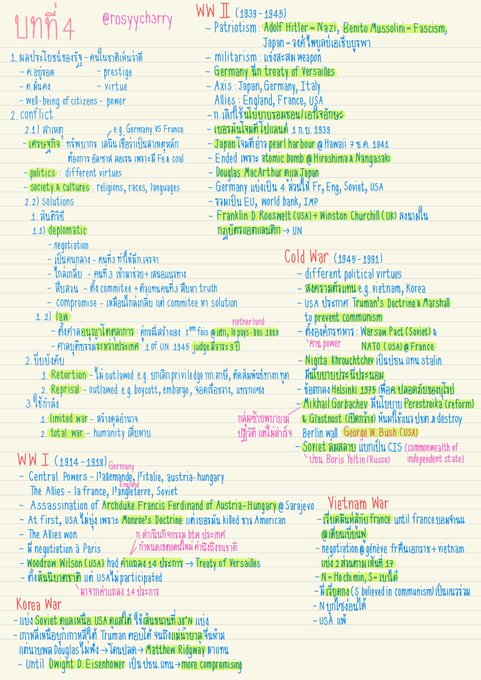 บทที่ 4
@rosyycharry
1. ผลประโยชน์ของรัฐ - คนในชาติเห็นว่าดี
- ค.อยู่รอด - prestige
- ค.มั่นคง - virtue
- well-being of citizens - power
2. conflict
2.1) สาเหตุ
e.g. Germany VS France
- เศรษฐกิจ ทรัพยากร เลนินเชื่อว่าเป็นสาเหตุหลัก
ต้องการ อัลซาส ลอเรน เพราะมี Fe & coal
- politics : different virtues
- society & cultures : religions, races, languages
2.2) solutions
1. สันติวิธี
1.1) deplomatic
- negotiation
- เป็นคนกลาง - คนที่ 3 ทำให้มีการเจรจา
- ไกล่เกลี่ย - คนที่ 3 เข้ามาช่วย + เสนอแนวทาง
- สืบสวน - ตั้ง commitee + ตัวแทนคนที่ 3 สืบหา truth
- compromise - เหมือนไกล่เกลี่ย แต่ commitee หา solution
1.2) law
netherland
- ตั้งศาลอนุญาโตตุลาการ - คู่กรณีสร้างเอง 1ère fois @เฮก, le pays-bas 1889
- ศาลยุติธรรมระหว่างประเทศ : 1 of UN 1945 judge มีวาระ 9 ปี
2. บีบบังคับ
1. Retortion - ไม่ outlawed e.g. ยกเลิก priviledge ภาษี, ตัดสัมพันธ์ทางทูต
2. Reprisal - outlawed e.g. boycott, embargo, ปิดอ่าว, แทรกแซง
3. ใช้กำลัง
1. limited war - สร้างดุลอำนาจ
2. total war - humanity เสียหาย
WW I (1914-1918)
Germany
- Central Powers - l'allemande, l'italie, austria-hungary
England
The Allies - la france, l'angleterre, soviet
- Assassination of Archduke Francis Ferdinand of Austria-Hungary @ Sarajevo
- At first, USA ไม่ยุ่ง เพราะ Monroe's Doctrine แต่เยอรมัน killed ชาว American
- The Allies won
- มี negotiation à Paris
กำหนดเขตแดนใหม่ คำนึงถึงชนชาติ
- Woodrow Wilson (USA) had คำแถลง 14 ประการ → Treaty of Versailles
- ตั้งสันนิบาตชาติ แต่ USA ไม่ participated
มาจากคำแถลง 14 ประการ
Korea War
- แบ่ง Soviet ดูแลเหนือ USA ดูแลใต้ ใช้เส้นขนานที่ 38°N แบ่ง
- เกาหลีเหนือบุกเกาหลีใต้ Truman ตอบโต้ จนถึงแม่น้ำยาลู จีนห้าม
แต่นายพล Douglas ไม่ฟัง → โดนปลด → Matthew Ridgway มาแทน
- Until Dwight D. Eisenhower เป็น ปธน. แทน → more compromising
WW II (1939-1945)
- Patriotism : Adolf Hitler - Nazi, Benito Mussolini - Fascism,
Japan - วงศ์ไพบูลย์เอเชียบูรพา
- militarism : แข่งสะสม weapon
- Germany ฉีก treaty of Versailles
- Axis : Japan, Germany, Italy
Allies : England, France, USA
- เยอรมันโจมตีโปแลนด์ 1 ก.ย. 1939
- Japan โจมตีอ่าว pearl harbour @ Hawaii 7 ธ.ค. 1941
- Ended เพราะ atomic bomb @ Hiroshima & Nangasaki
- Douglas MacArthur คุม Japan
- Germany แบ่งเป็น 4 ส่วนให้ Fr, Eng, Soviet, USA
- รวมเป็น EU, world bank, IMP
- Franklin D. Rooswelt (USA) + Winston Churchill (UK) ลงนามใน
กฎบัตรแอตแลนติก → UN
Cold War (1945-1991)
- different political virtues
- สงครามตัวแทน e.g. vietnam, Korea
- USA ประกาศ Truman's Doctrine & Marshall
to prevent communism
- ตั้งองค์กรทหาร : Warsaw Pact (Soviet) &
NATO (USA) @ France
- Nigita Khrouchtchev เป็น ปธน. แทน stalin
มีนโยบายประนีประนอม
- ข้อตกลง Helsinki 1975 เพื่อค.ปลอดภัยของยุโรป
- Mikhail Gorbachev มีนโยบาย Perestroika (reform)
& Glastnost (เปิดกว้าง) หันมาใช้แนว ปชต. & destroy
Berlin wall George W. Bush (USA)
กลุ่มซ้ายพยายาม
ปฏิวัติ แต่ไม่สำเร็จ
- Soviet ล่มสลาย แยกเป็น CIS (commonwealth of
independent state)
ปธน. Boris Yeltin (Russe)
Vietnam War
- เวียดมินห์สู้กับ france until france ยอมจำนน
@เดียนเบียนฟู
- negotiation @ génève fr คืนเอกราช + vietnam
แบ่ง 2 ส่วนตามเส้นที่ 17
- N = Ho chi min, S = เบาได๋
- มีเวียดกง (S believed in communism) เป็นแนวร่วม
- N บุกไซ่ง่อนได้
- USA แพ้